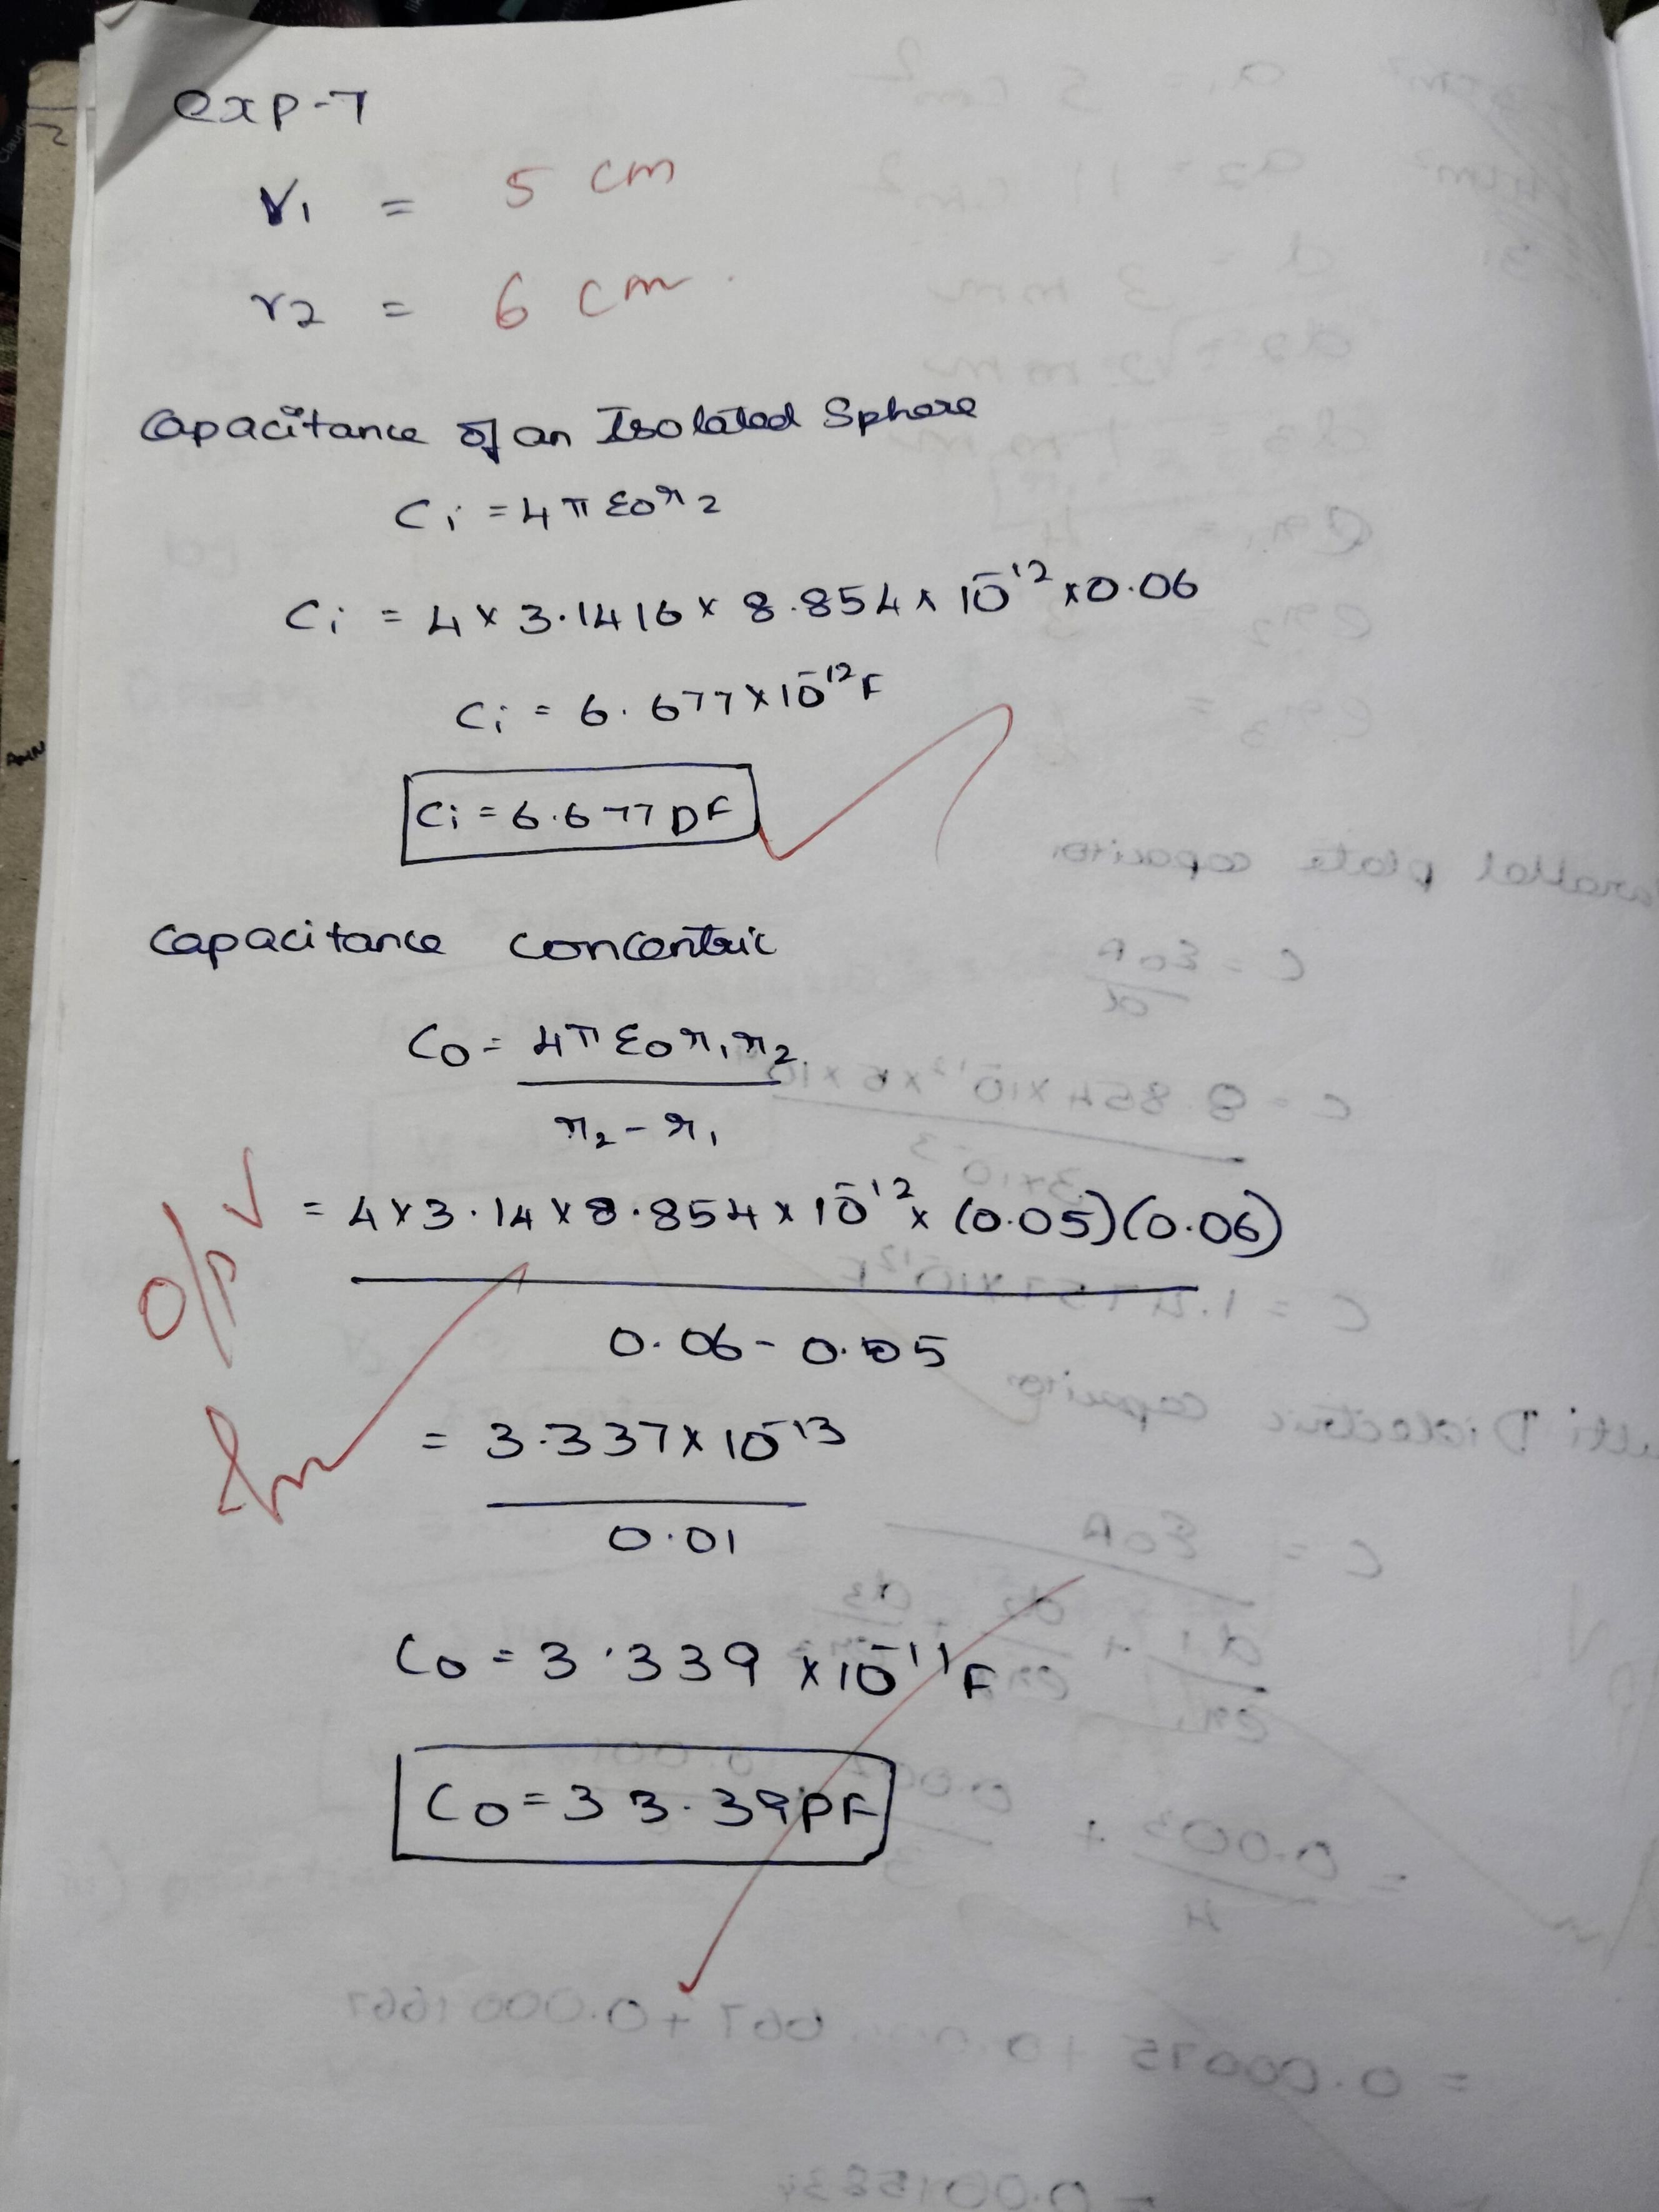 exp-7
r1 = 5 cm
r2 = 6 cm.
Capacitance of an Isolated Sphere
Ci = 4π ε0 r2
Ci = 4 × 3.1416 × 8.854 × 10^-12 × 0.06
Ci = 6.677 × 10^-12 F
Ci = 6.677 pF
Capacitance concentric
C0 = 4π ε0 r1 r2
r2 - r1
O/P ✓
= 4 × 3.14 × 8.854 × 10^-12 × (0.05)(0.06)
0.06 - 0.05
= 3.337 × 10^-13
0.01
C0 = 3.339 × 10^-11 F
C0 = 33.39 pF